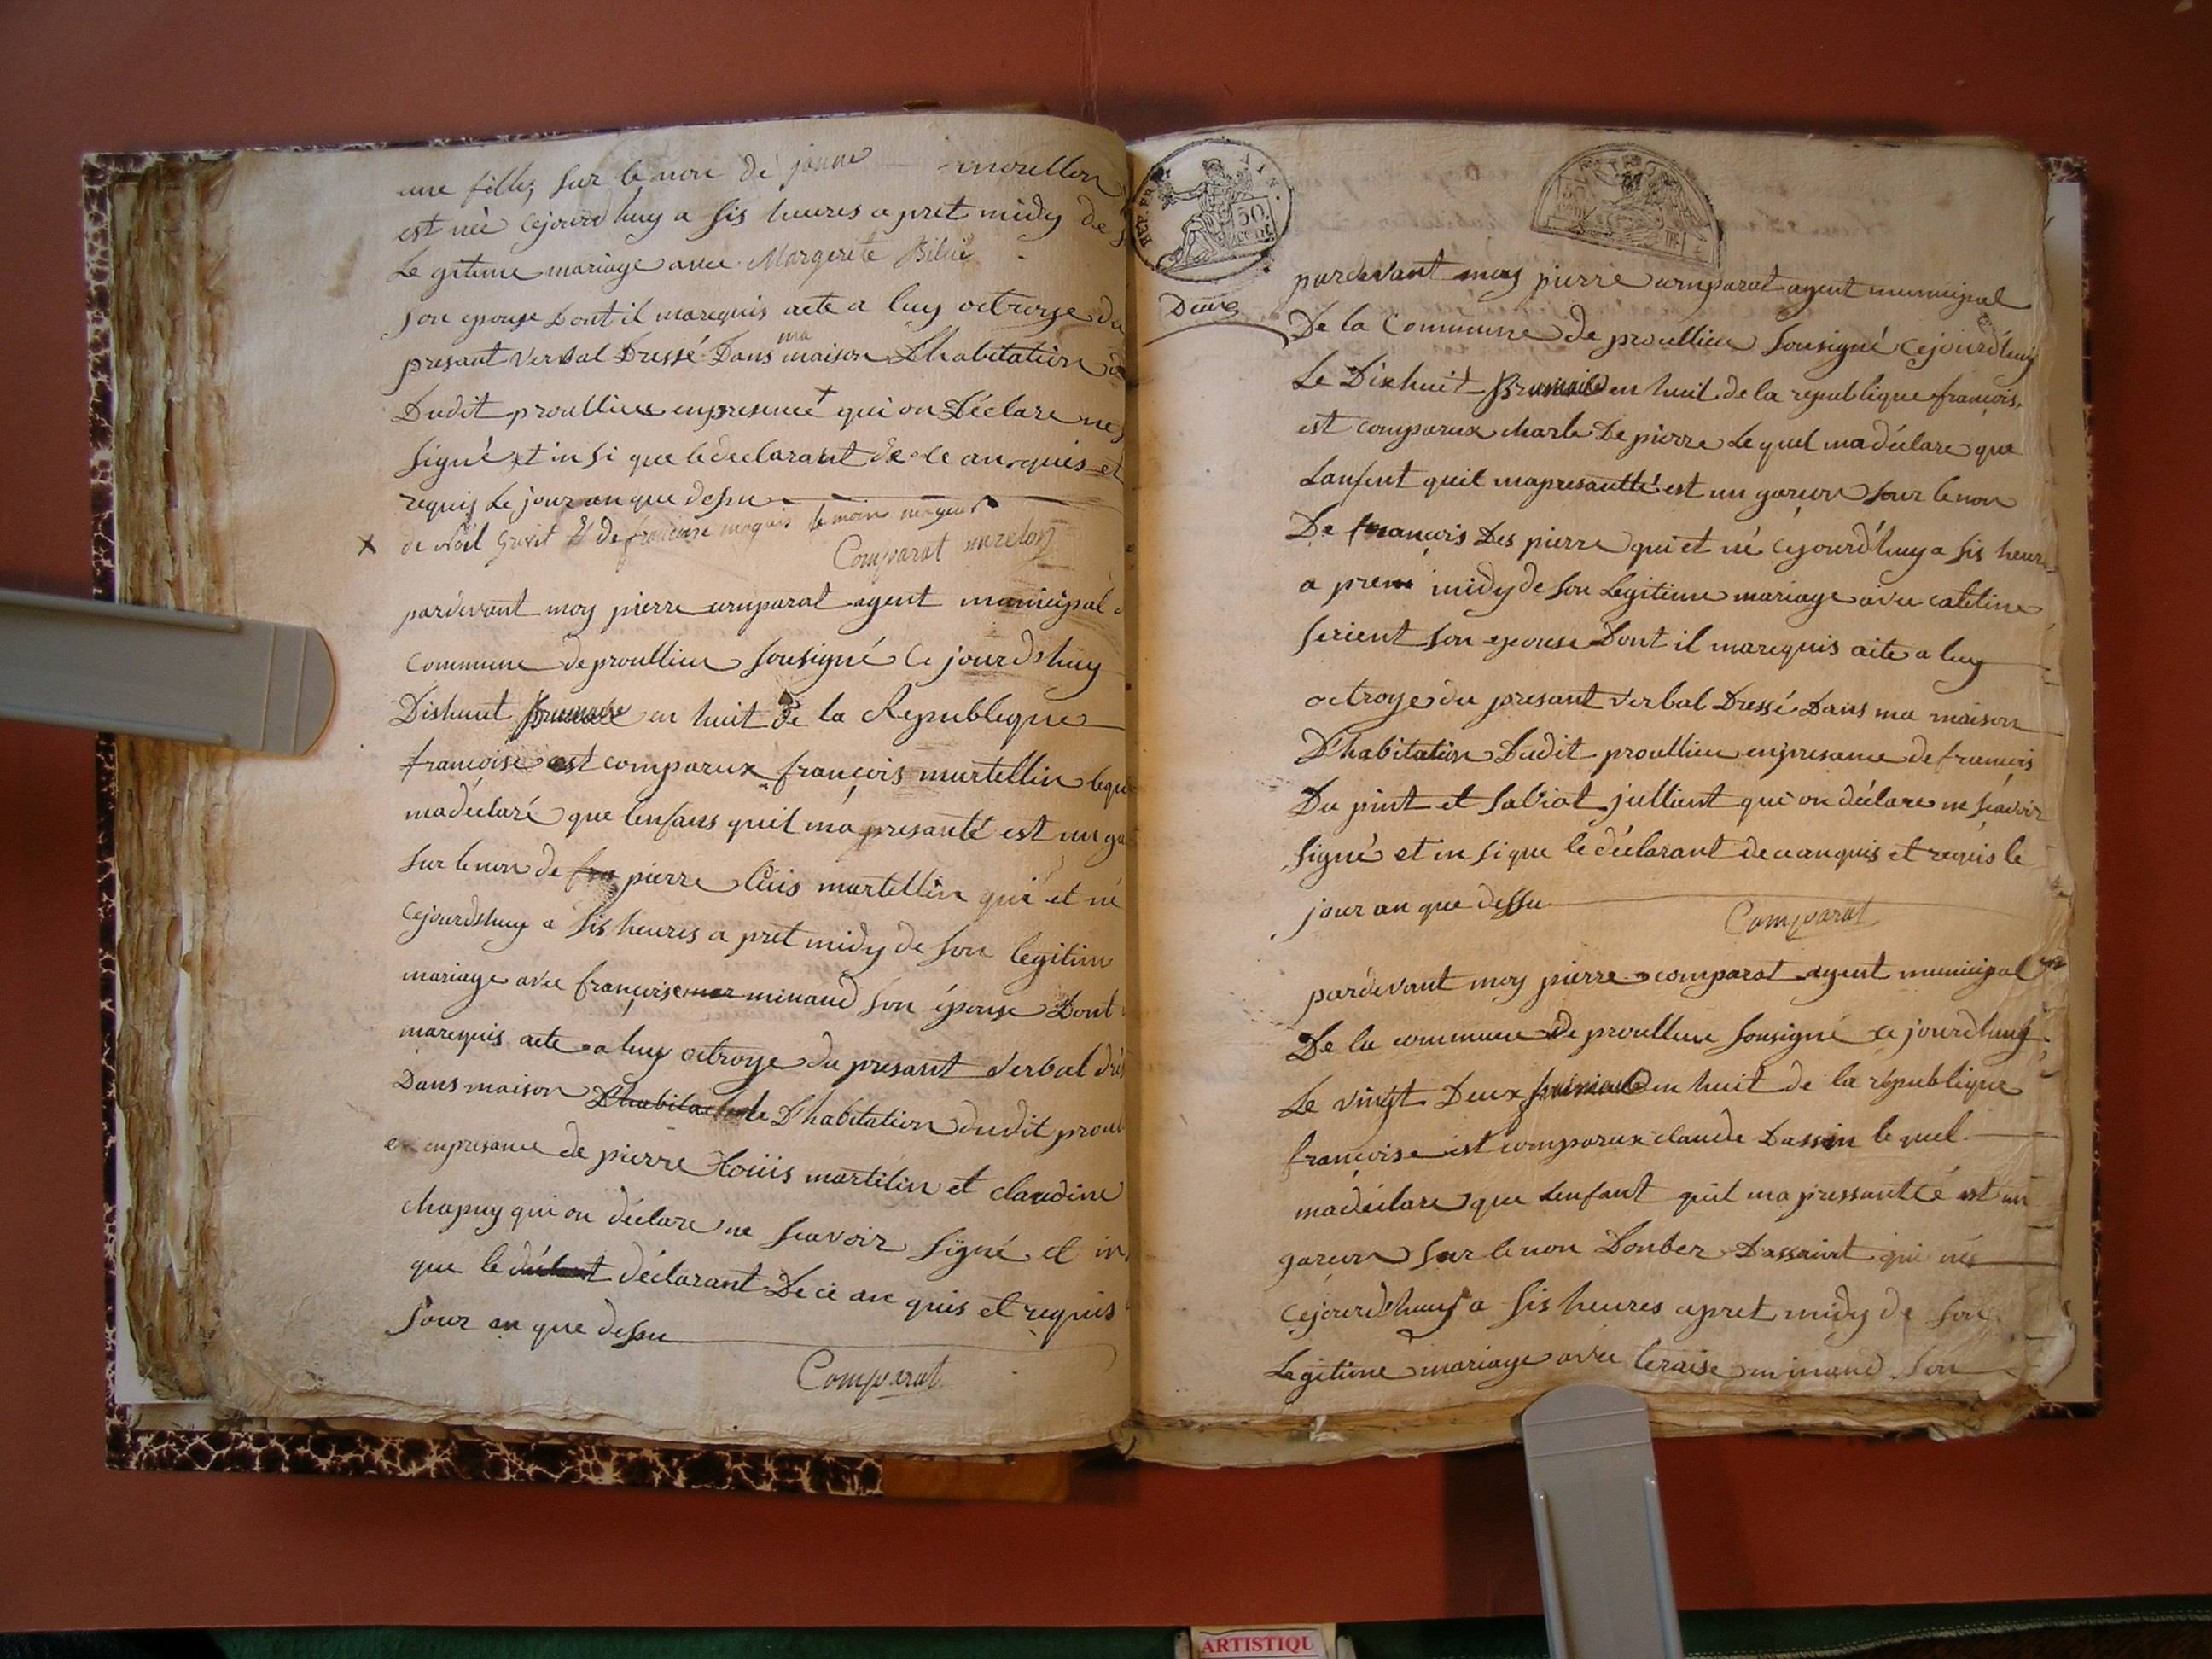 une fille, sur le non de jeanne morellon
est née cejourd huy a sis heures apret midy de
Le gitime mariage avec Margerite
son epouse Dont il marequis acte a luy octroye du
presant verbal Dressé Dans ma maison D'habitation
Dudit proullieu enpresence + qui on Déclare ne
signé et insi que le declarant de ce anquis et
requis le jour an que dessu
X de Nöel Grivet Et de francoise le moin mageur
Comparat morelon
pardevant moy pierre comparat agent municipal
commune de proullieu sousigné Ce jourdhuy
Dishuit en huit de la Republique
francoise est comparux françois martellin lequ
madéclaré que lenfans quil ma presanté est un ga
sur le non de fra pierre loüis martellin qui et né
cejourdhuy a sis heures apret midy de son legitim
mariage avec françoise mar minaud son épouse Dont
marequis acte a luy octroye du presant verbal drés
Dans maison D'habitation dudit proul
enpresance de pierre Loüis martelin et claudine
chapuy qui on déclare ne scavoir signé et in
que le déclarant De ce an quis et requis
jour an que dessu
Comparat
REP. FRA.
50 CENT
50
Deux
pardevant moy pierre comparat agent municipal
De la Commune de proullieu sousigné Cejourdhuy
Le Dixhuit Brumaire en huit de la republique françois
est comparux charle De pierre Lequel ma déclare que
Lanfent quil mapresantté est un garcon sour le non
De francois Des pierre qui et né cejourd'huy a sis heur
a pre midy de son Legitime mariage avec catéline
serient son epouse Dont il marequis aite a luy
octroye du presant verbal Dressé Dans ma maison
D'habitation Dudit proullieu enpresance de francois
Du pint et jullient qui on déclare ne scavoir
signé et insi que le déclarant de ce anquis et requis le
jour an que dessu
Comparat
pardevant moy pierre comparat agent municipal
De la commune De proullieu sousigné ce jourdhuy
Le vingt Deux en huit de la république
françoise est comparux claude Dassin lequel
madéclare que Lenfant quil ma pressantté est un
garcon sur le non Donber Dassaint qui nés
Cejourd'huy a sis heures apret midy de son
Legitime mariage avec minaud son
ARTISTIQU